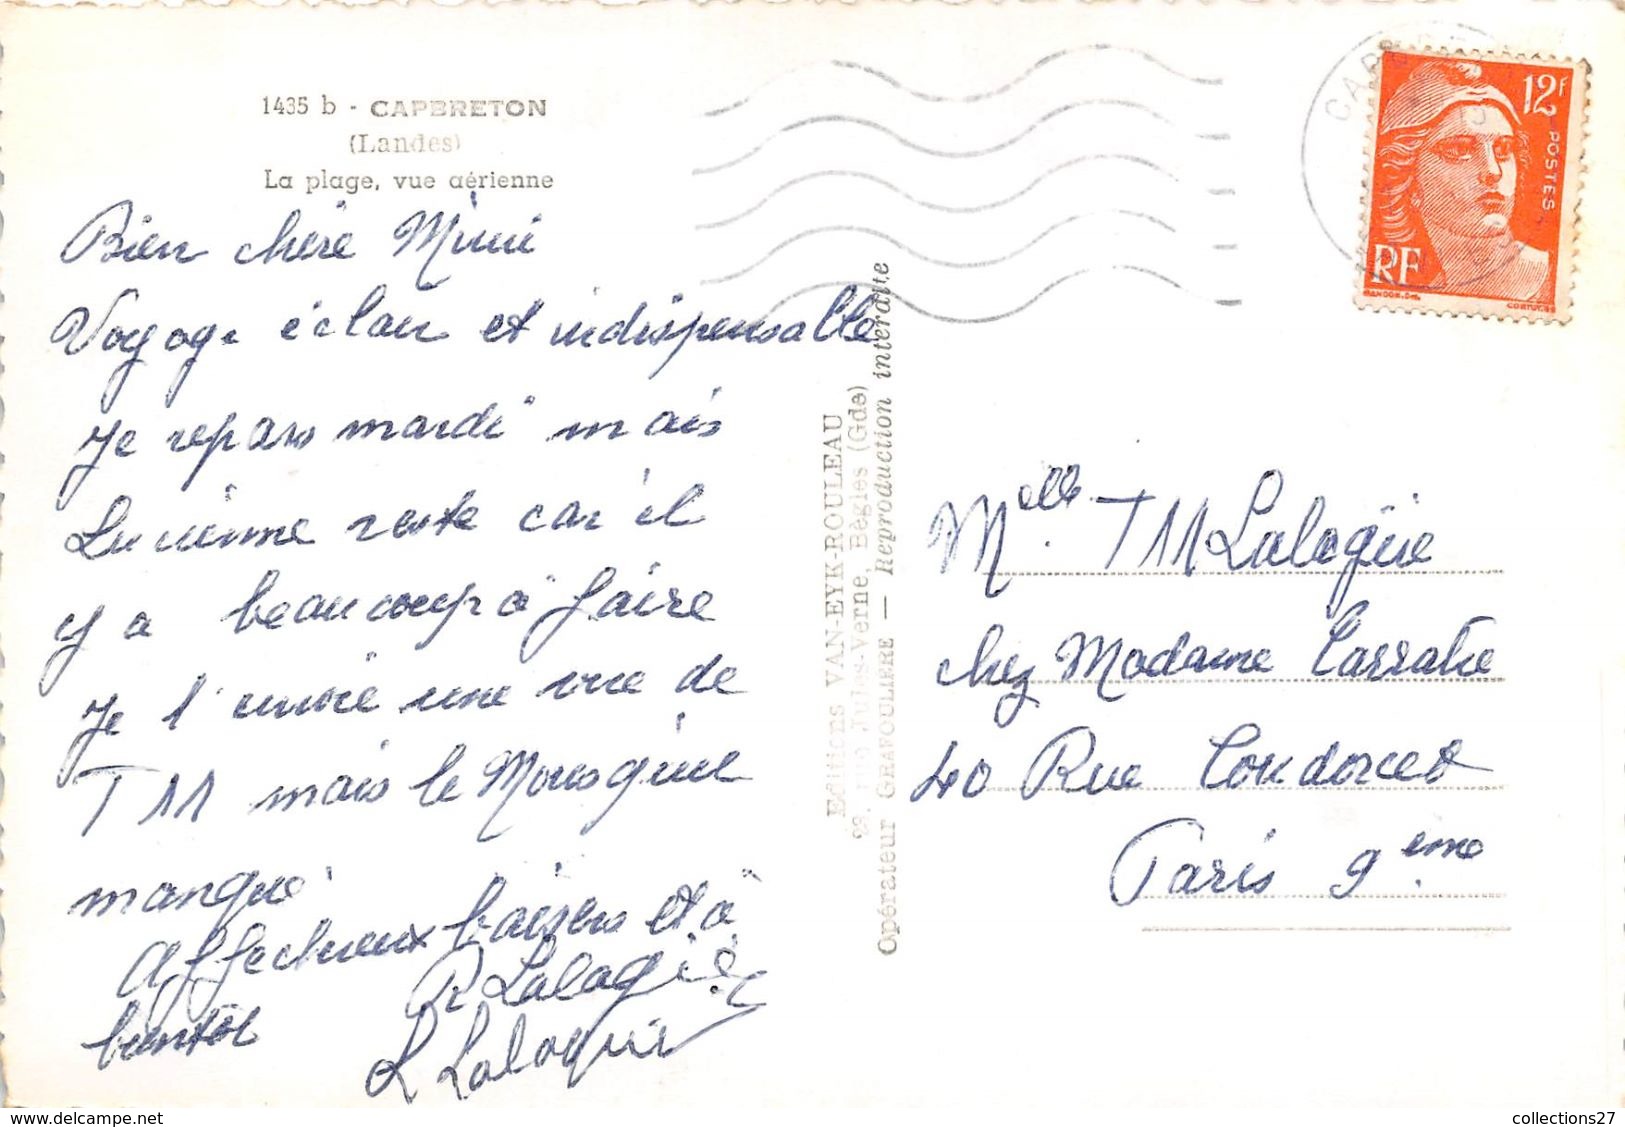 1435 b - CAPBRETON
(Landes)
La plage, vue aérienne
Bien chère Mimi
Voyage éclair et indispensable
Je repars mardi mais
Lucienne reste car il
y a beaucoup à faire
Je t'envoie une vue de
mais le Mousquie
manqué
Affectueux baisers et à
bientôt
R Lalagüe
L Lalagüe
Editions VAN-EYK-ROULEAU
rue Jules-Verne, Bègles (Gde)
Opérateur GRAFOULIERE — Reproduction interdite
CAPB
12f
POSTES
RF
GANDON
CORTOT
Melle. Lalagüe
chez Madame
40 Rue Condorcet
Paris 9eme
collections27